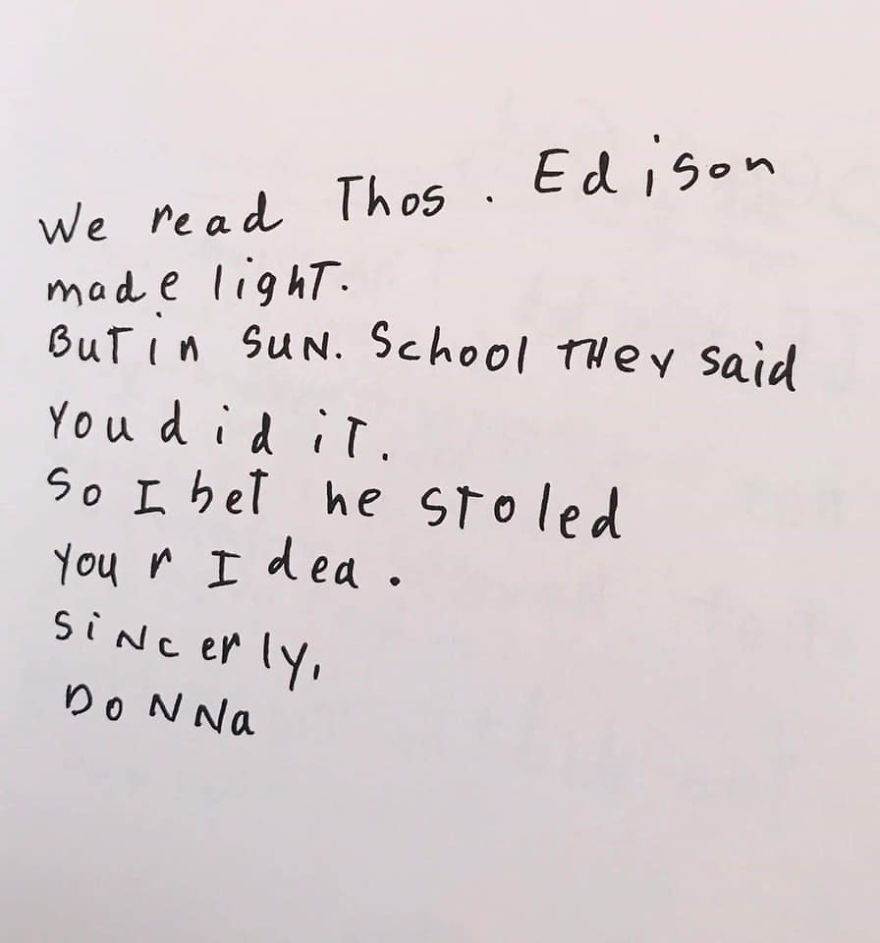 We read Thos. Edison
made light.
But in SUN. School THey said
You did iT.
So I bet he stoled
your Idea.
SiNcerly,
DoNNa